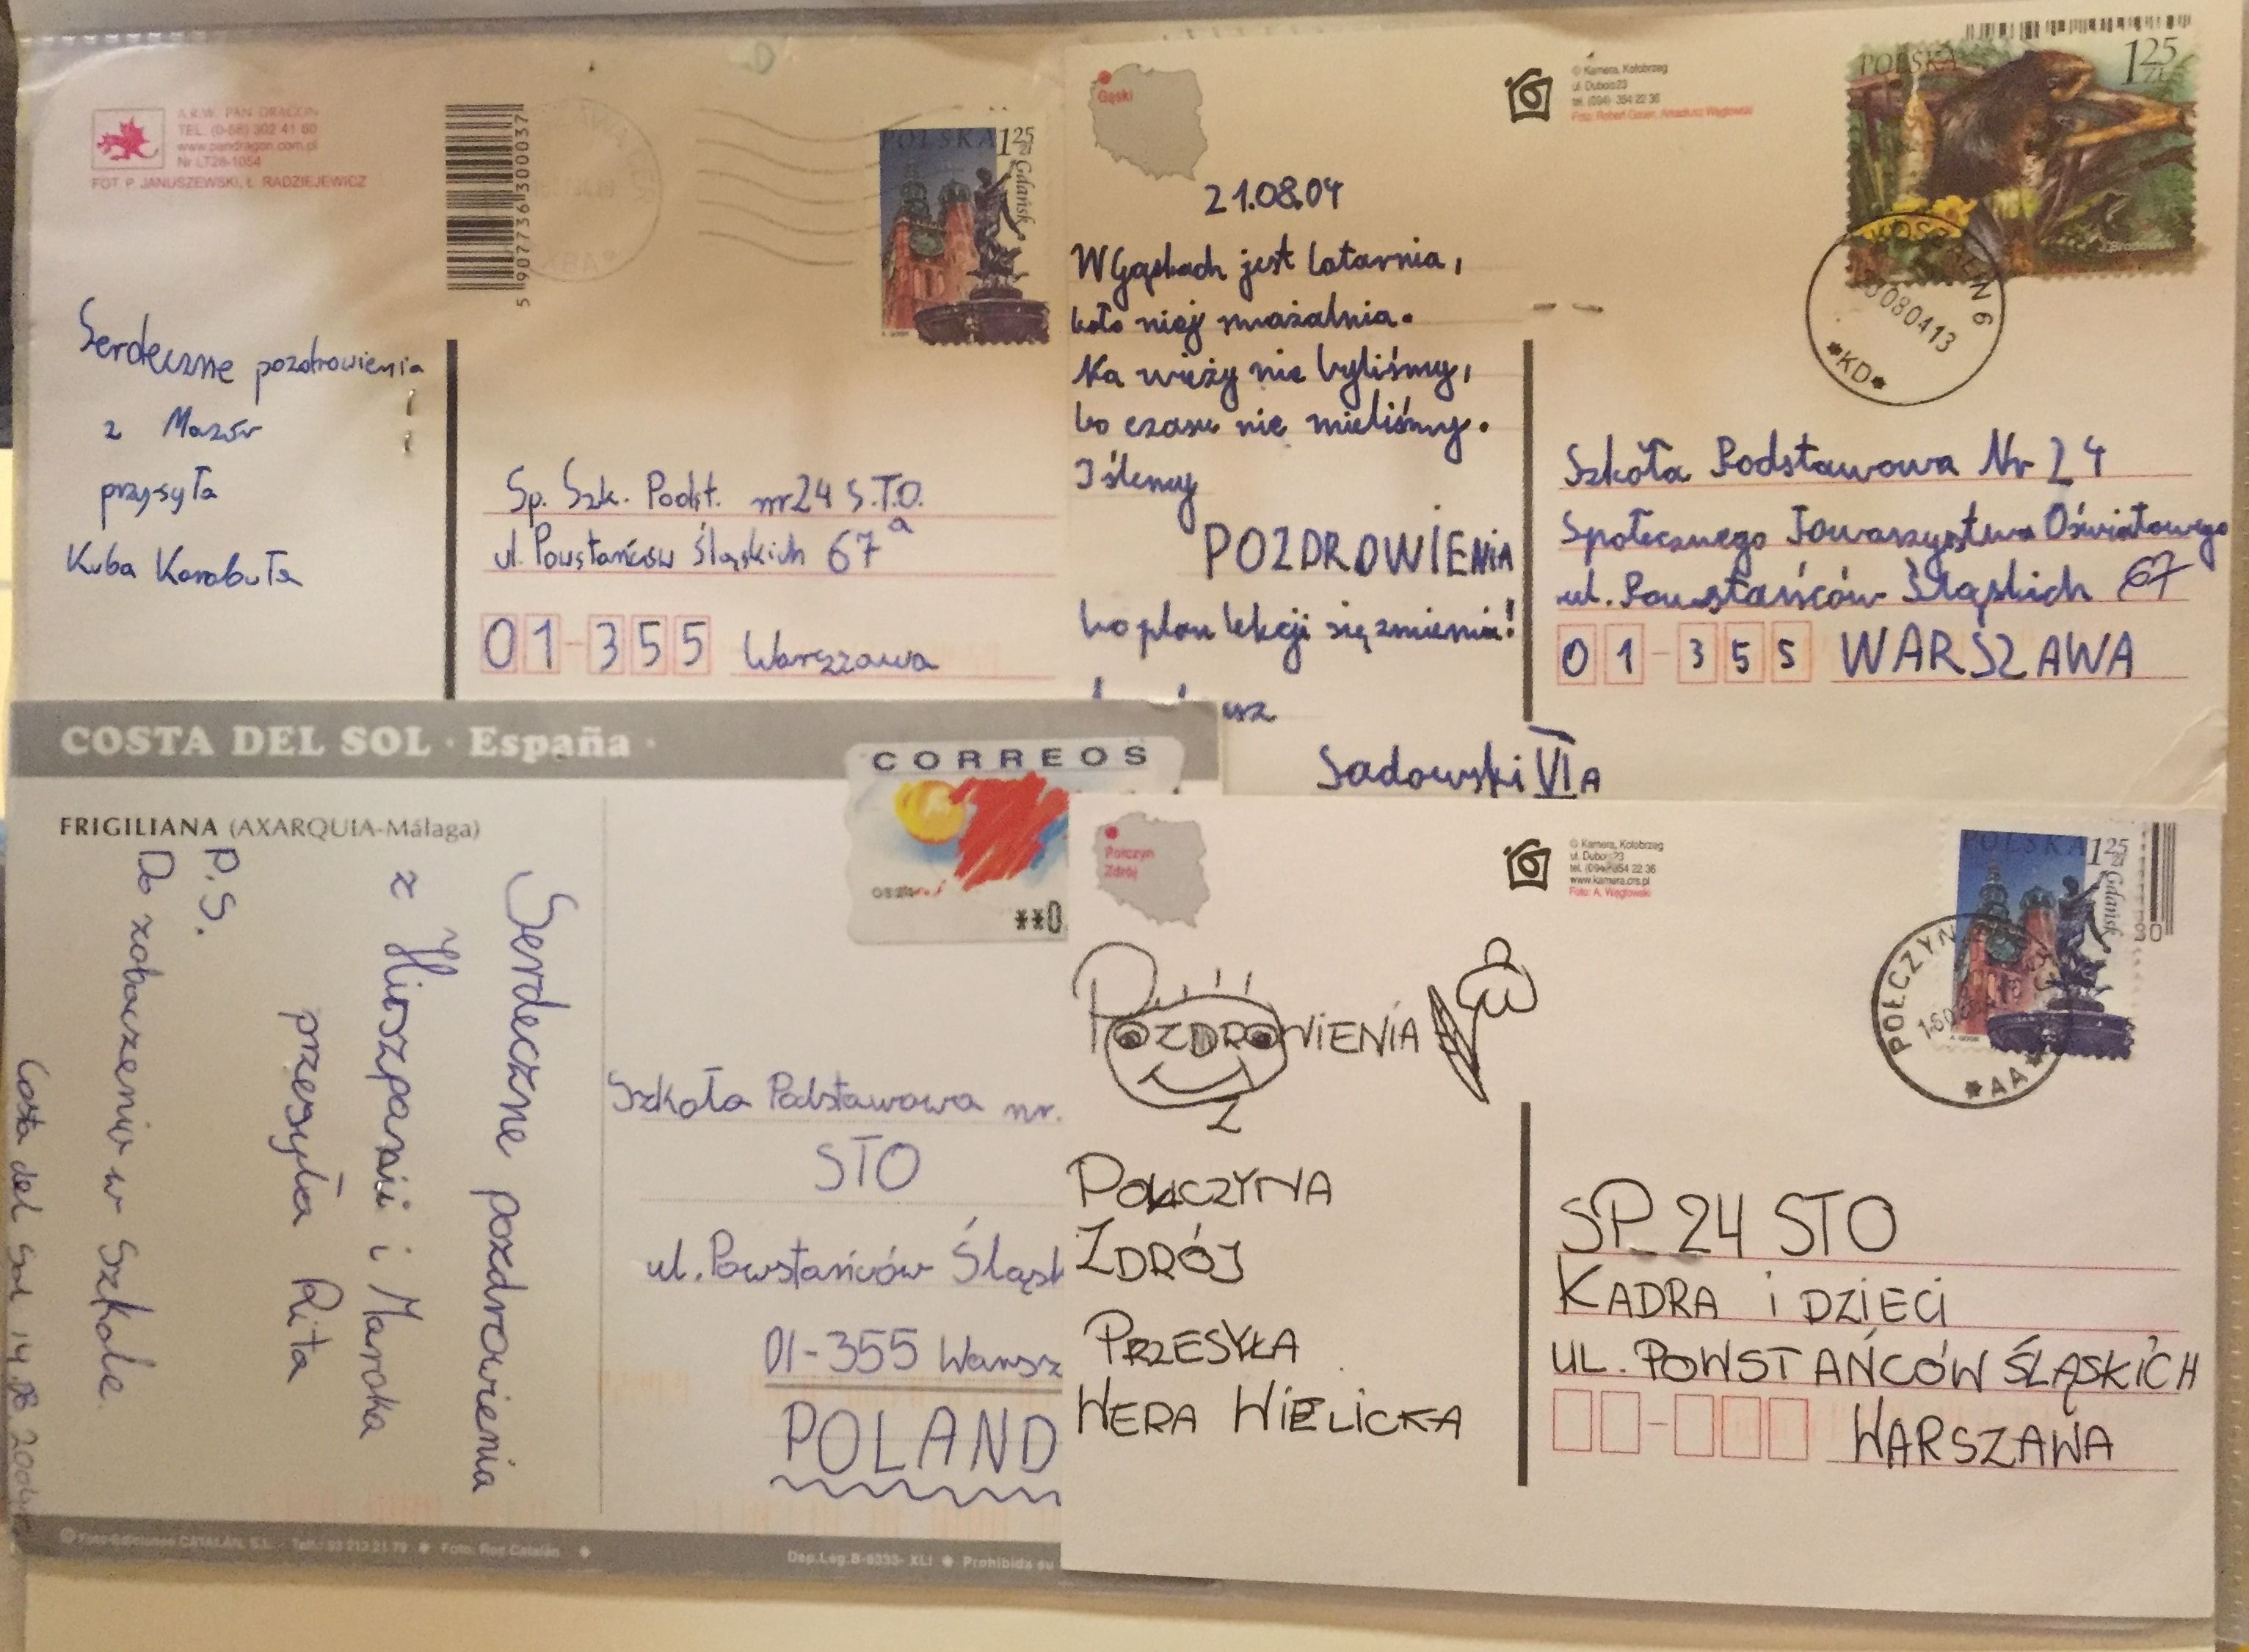 A.R.W. PAN DRAGON
TEL. (0-58) 302 41 60
www.pandragon.com.pl
Nr LT28-1054
FOT. P. JANUSZEWSKI, Ł. RADZIEJEWICZ
5 907736 300037
POLSKA 1 25 zł
Gdańsk
Serdeczne pozdrowienia
z Mazór
przysyła
Kuba Karabuła
Sp. Szk. Podst. nr 24 S.T.O.
ul. Powstańców Śląskich 67a
01-355 Warszawa
Gąski
© Kamera, Kołobrzeg
ul. Dubois 23
tel. (094) 354 22 36
POLSKA 1 25 ZŁ
KOSZALIN 6
*KD*
21.08.04
W Gąskach jest latarnia,
koło niej smażalnia.
Na wieży nie byliśmy,
bo czasu nie mieliśmy.
I ślemy
POZDROWIENIA
bo plan lekcji się zmienia!
usz
Sadowski VI A
Szkoła Podstawowa Nr 24
Społecznego Towarzystwa Oświatowego
ul. Powstańców Śląskich 67
01-355 WARSZAWA
COSTA DEL SOL · España ·
CORREOS
**0
FRIGILIANA (AXARQUIA-Málaga)
Serdeczne pozdrowienia
z Hiszpanii i Maroka
przesyła Rita
P.S.
Do zobaczenia w Szkole.
Costa del Sol 14.08.200
Szkoła Podstawowa nr.
STO
ul. Powstańców Śląsk
01-355 Warsz
POLAND
CATALÁN, S.L. Telf.: 93 212 21 79 Foto: Roc Catalán
Dep. Leg. B-8333- XLI Prohibida su
Połczyn
Zdrój
© Kamera, Kołobrzeg
ul. Dubois 23
tel. (094) 354 22 36
www.kamera.crs.pl
Foto: A. Węglowski
POLSKA 1 25 zł
Gdańsk
POŁCZYN
*AA*
POZDROWIENIA
Z
POŁCZYNA
ZDRÓJ
PRZESYŁA
WERA WIELICKA
SP 24 STO
KADRA i DZIECI
UL. POWSTAŃCÓW ŚLĄSKICH
WARSZAWA